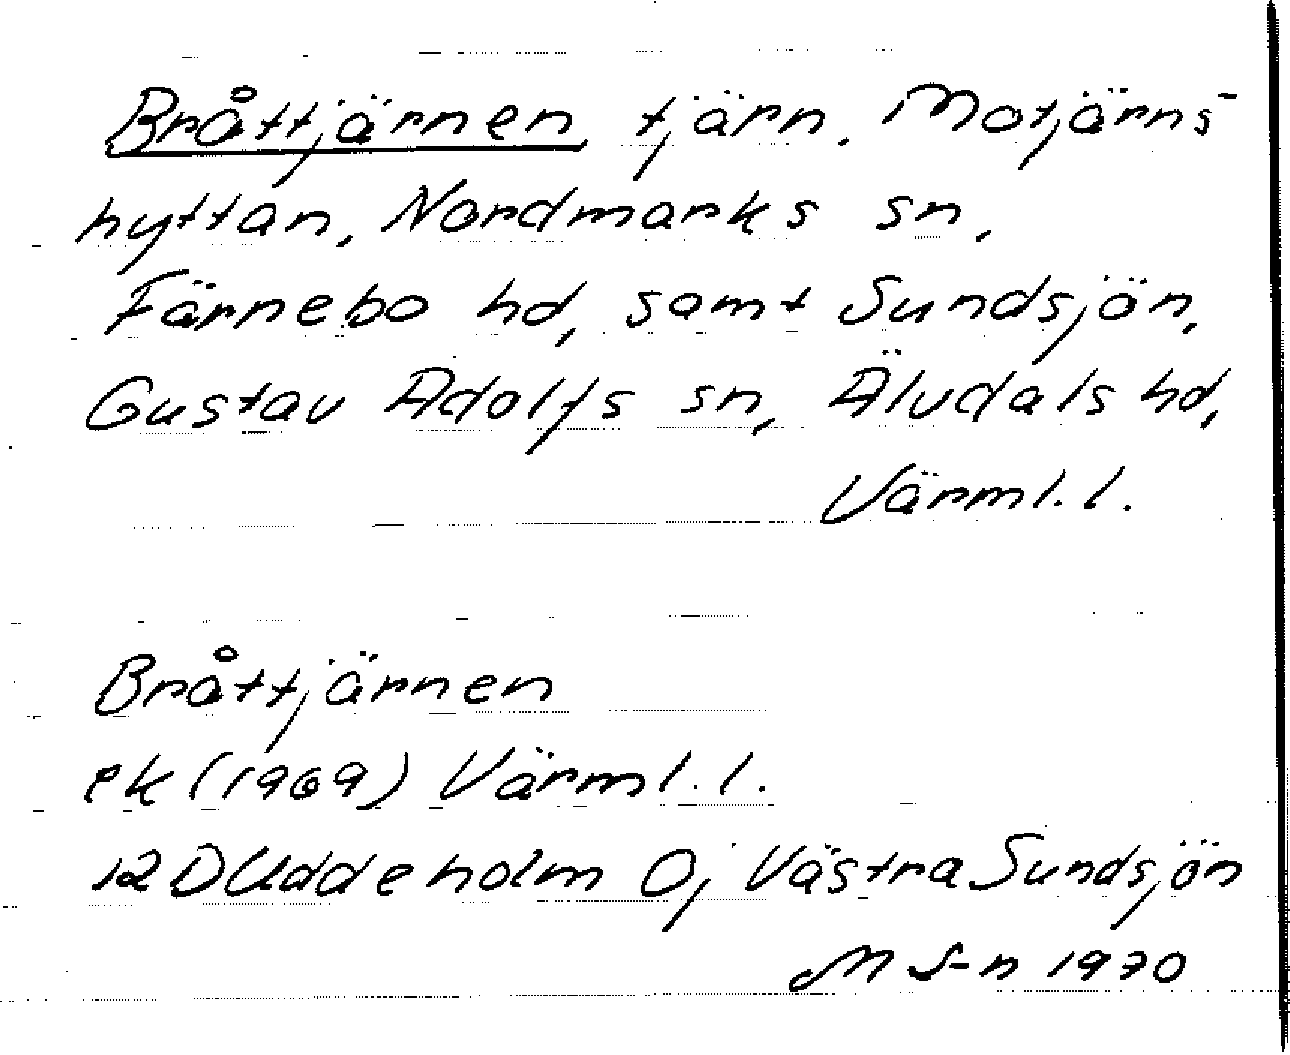 Bråttjärnen, tjärn. Motjärns-
hyttan, Nordmarks sn,
Färnebo hd, samt Sundsjön,
Gustav Adolfs sn, Älvdals hd,
Värml. l.
Bråttjärnen
ek (1969) Värml. l.
12D Uddeholm 0j Västra Sundsjön
M S-n 1970